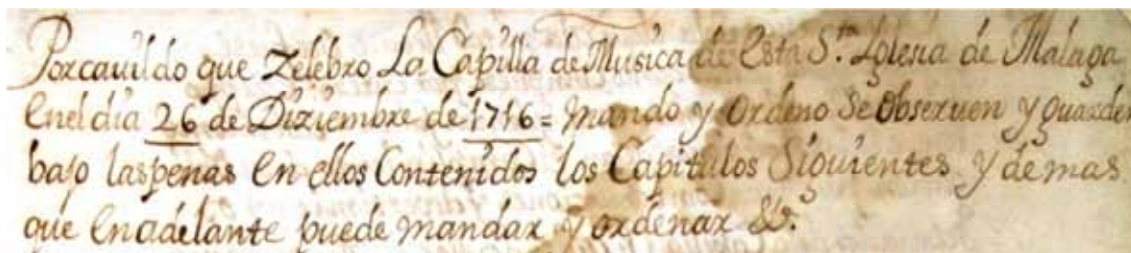 Porcauildo que Zelebro La Capilla de Musica de Esta S.ta Iglesia de Malaga
Enel dia 26 de Diziembre de 1716 = Mando y Ordeno Se Obseruen y guarden
bajo laspenas En ellos Contenidos los Capitulos Siguientes y demas
que Enadelante puede mandar y ordenar &.